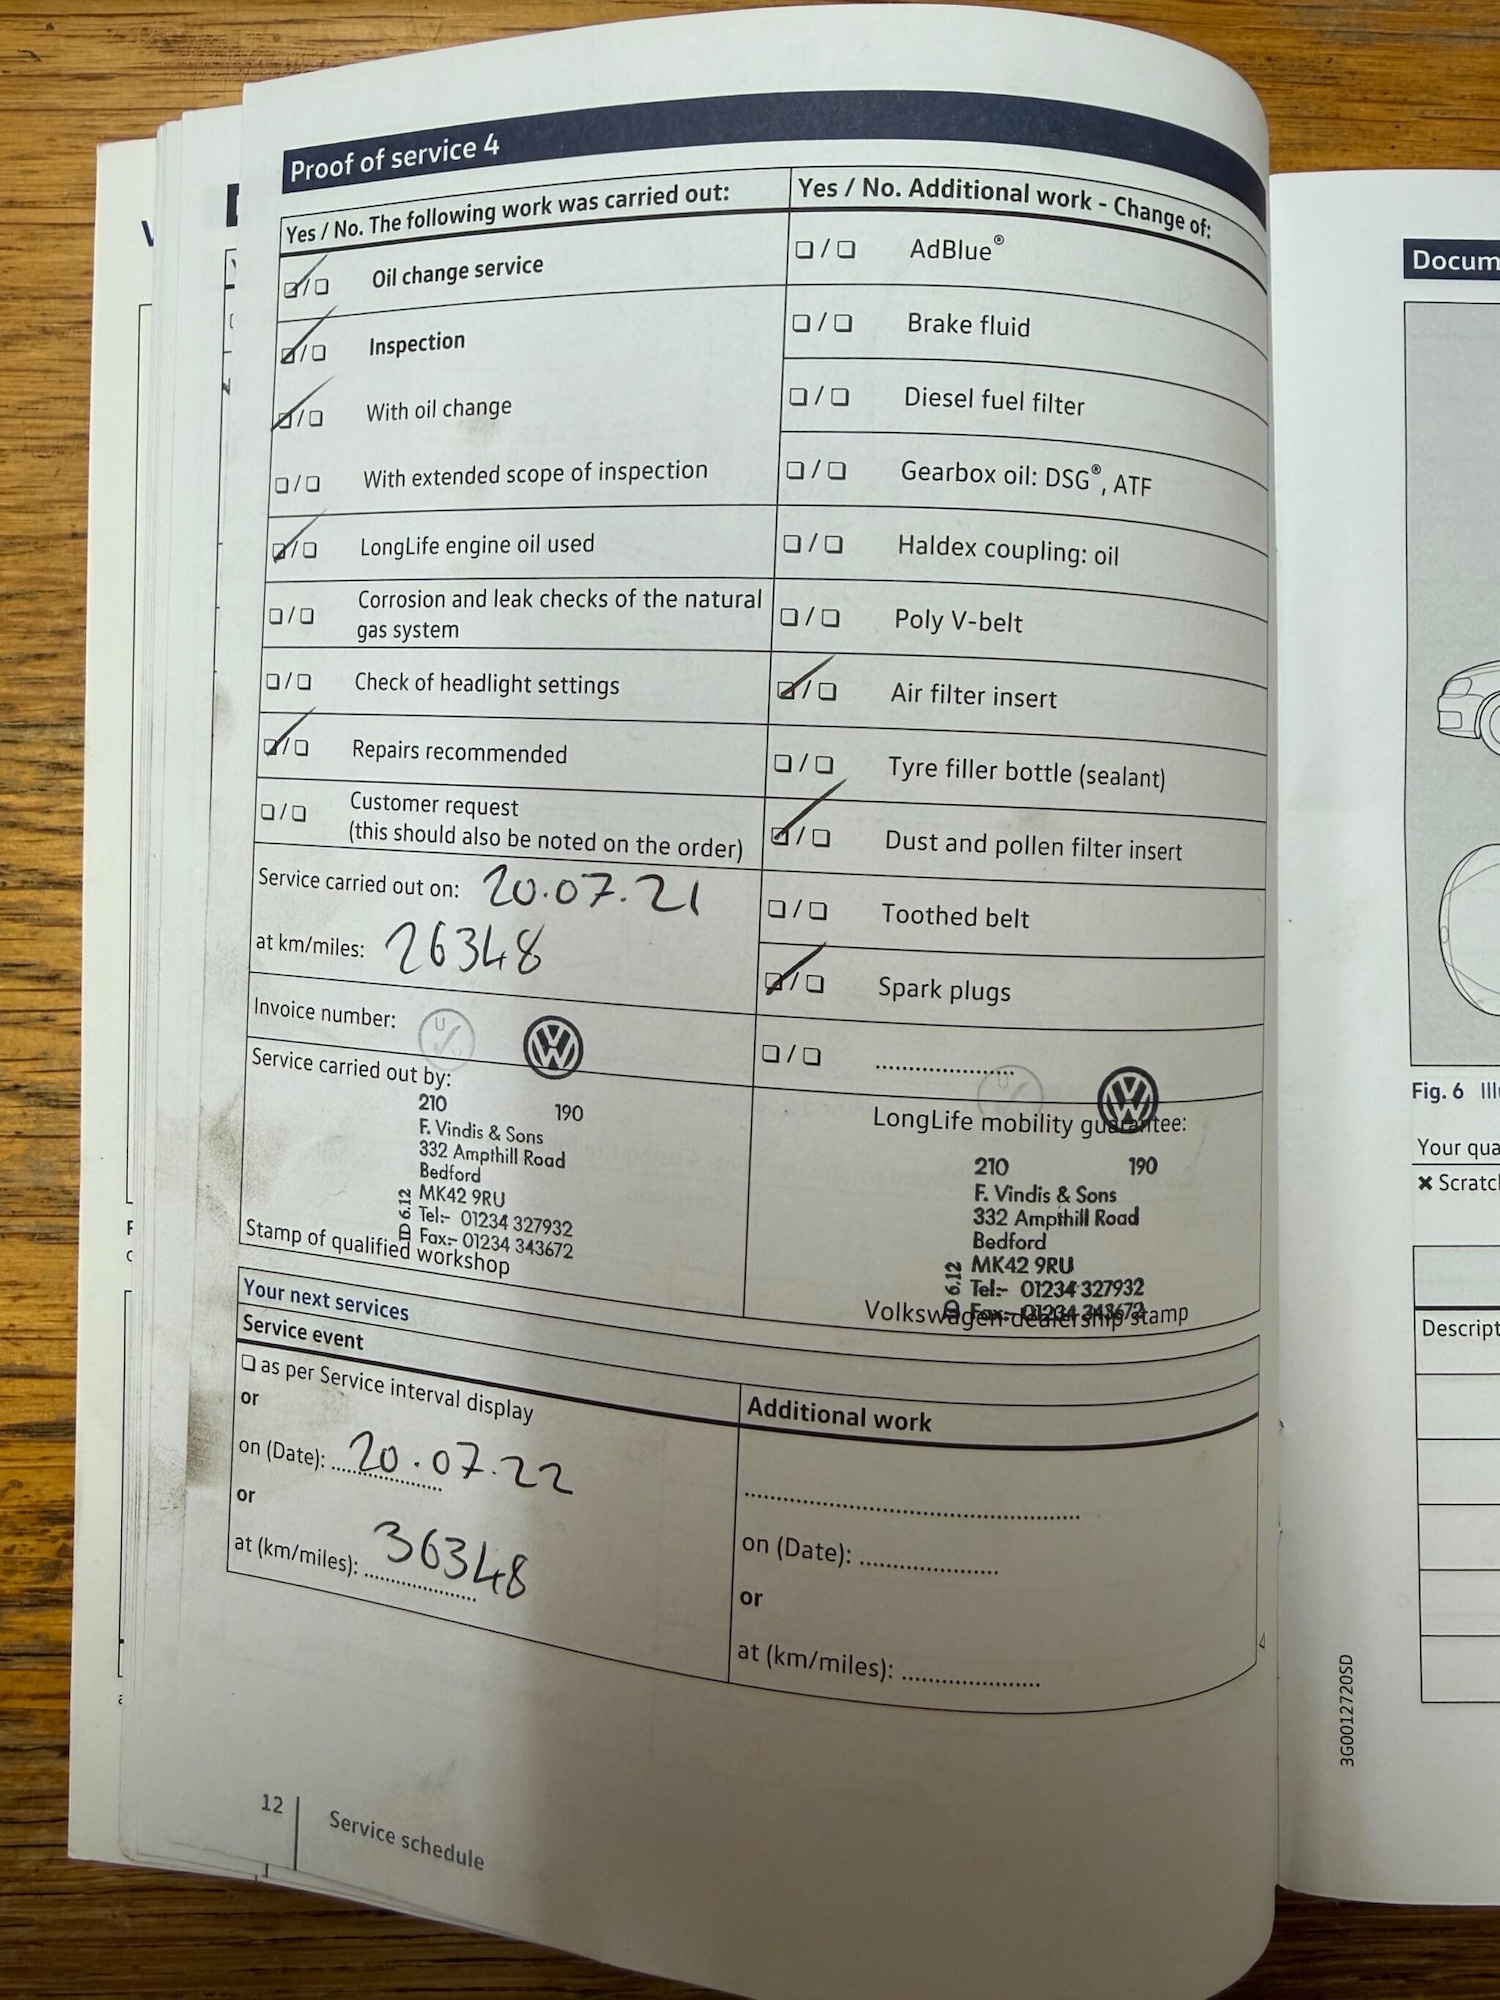 Proof of service 4
Yes / No. The following work was carried out:
☑/☐ Oil change service
☑/☐ Inspection
☑/☐ With oil change
☐/☐ With extended scope of inspection
☑/☐ LongLife engine oil used
☐/☐ Corrosion and leak checks of the natural
gas system
☐/☐ Check of headlight settings
☑/☐ Repairs recommended
☐/☐ Customer request
(this should also be noted on the order)
Service carried out on: 20.07.21
at km/miles: 26348
Invoice number:
Service carried out by:
210 190
F. Vindis & Sons
332 Ampthill Road
Bedford
MK42 9RU
Tel:- 01234 327932
Fax:- 01234 343672
ID 6.12
Stamp of qualified workshop
Yes / No. Additional work - Change of:
☐/☐ AdBlue®
☐/☐ Brake fluid
☐/☐ Diesel fuel filter
☐/☐ Gearbox oil: DSG®, ATF
☐/☐ Haldex coupling: oil
☐/☐ Poly V-belt
☑/☐ Air filter insert
☐/☐ Tyre filler bottle (sealant)
☑/☐ Dust and pollen filter insert
☐/☐ Toothed belt
☑/☐ Spark plugs
☐/☐ ....................
LongLife mobility guarantee:
210 190
F. Vindis & Sons
332 Ampthill Road
Bedford
MK42 9RU
Tel:- 01234 327932
Fax:- 01234 343672
ID 6.12
Volkswagen dealership stamp
Your next services
Service event
☐ as per Service interval display
or
on (Date): 20.07.22
or
at (km/miles): 36348
Additional work
on (Date): ....................
or
at (km/miles): ....................
12
Service schedule
Docum
Fig. 6 Ill
Your qua
× Scratc
Descript
3G0012720SD